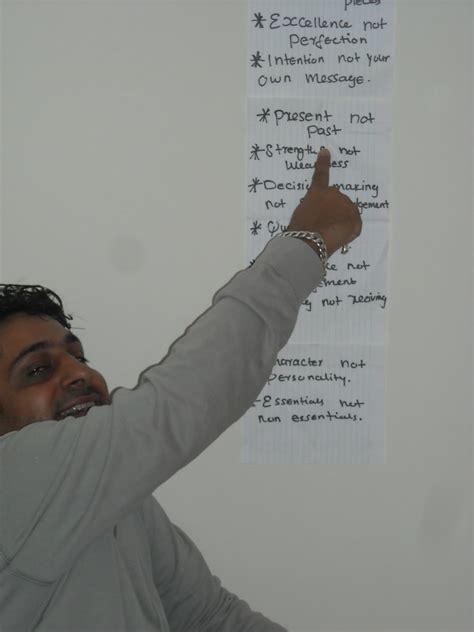 pieces
* Excellence not
perfection
* Intention not your
own message.
* Present not
past
* Strength not
Weakness
* Decision making
not
*
not
not reciving
character not
personality.
* Essentials not
non essentials.